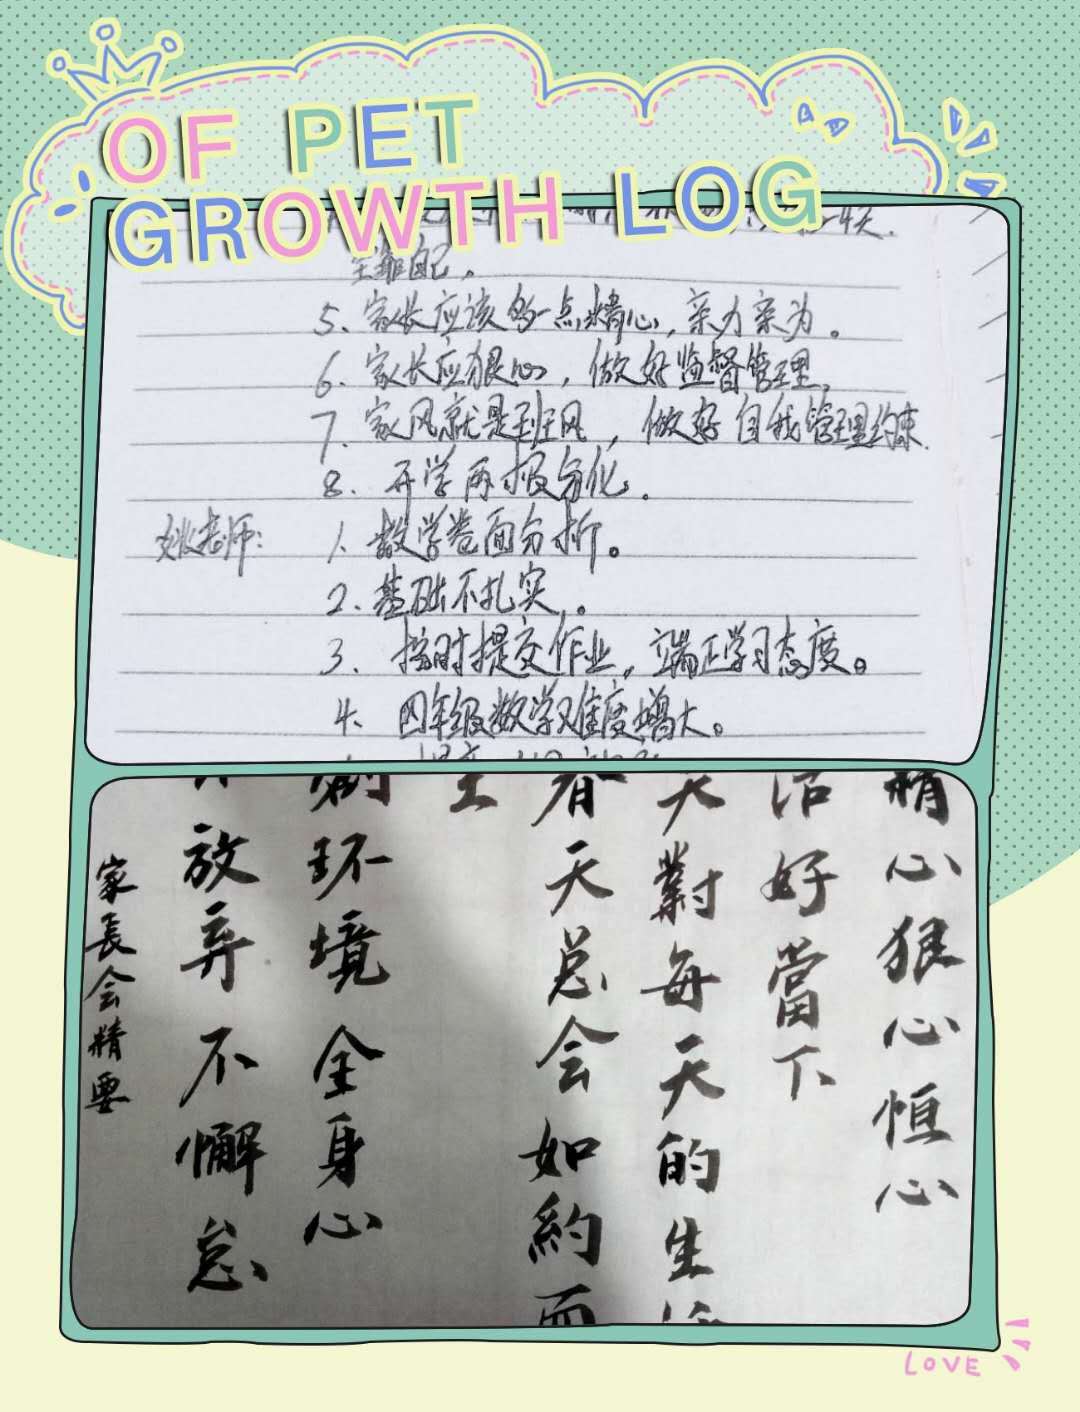 OF PET
GROWTH LOG
4天.
全靠自己。
5、家长应该多一点精心,亲力亲为。
6、家长应狠心,做好监督管理。
7、家风就是班风,做好自我管理约束.
8、开学两极分化.
姚老师:1、数学卷面分析。
2、基础不扎实。
3、按时提交作业,端正学习态度。
4、四年级数学难度增大。
精心狠心恒心
活好當下
天對每天的生活
春天总会如約而
全
制环境全身心
放弃不懈怠
家長会精要
LOVE